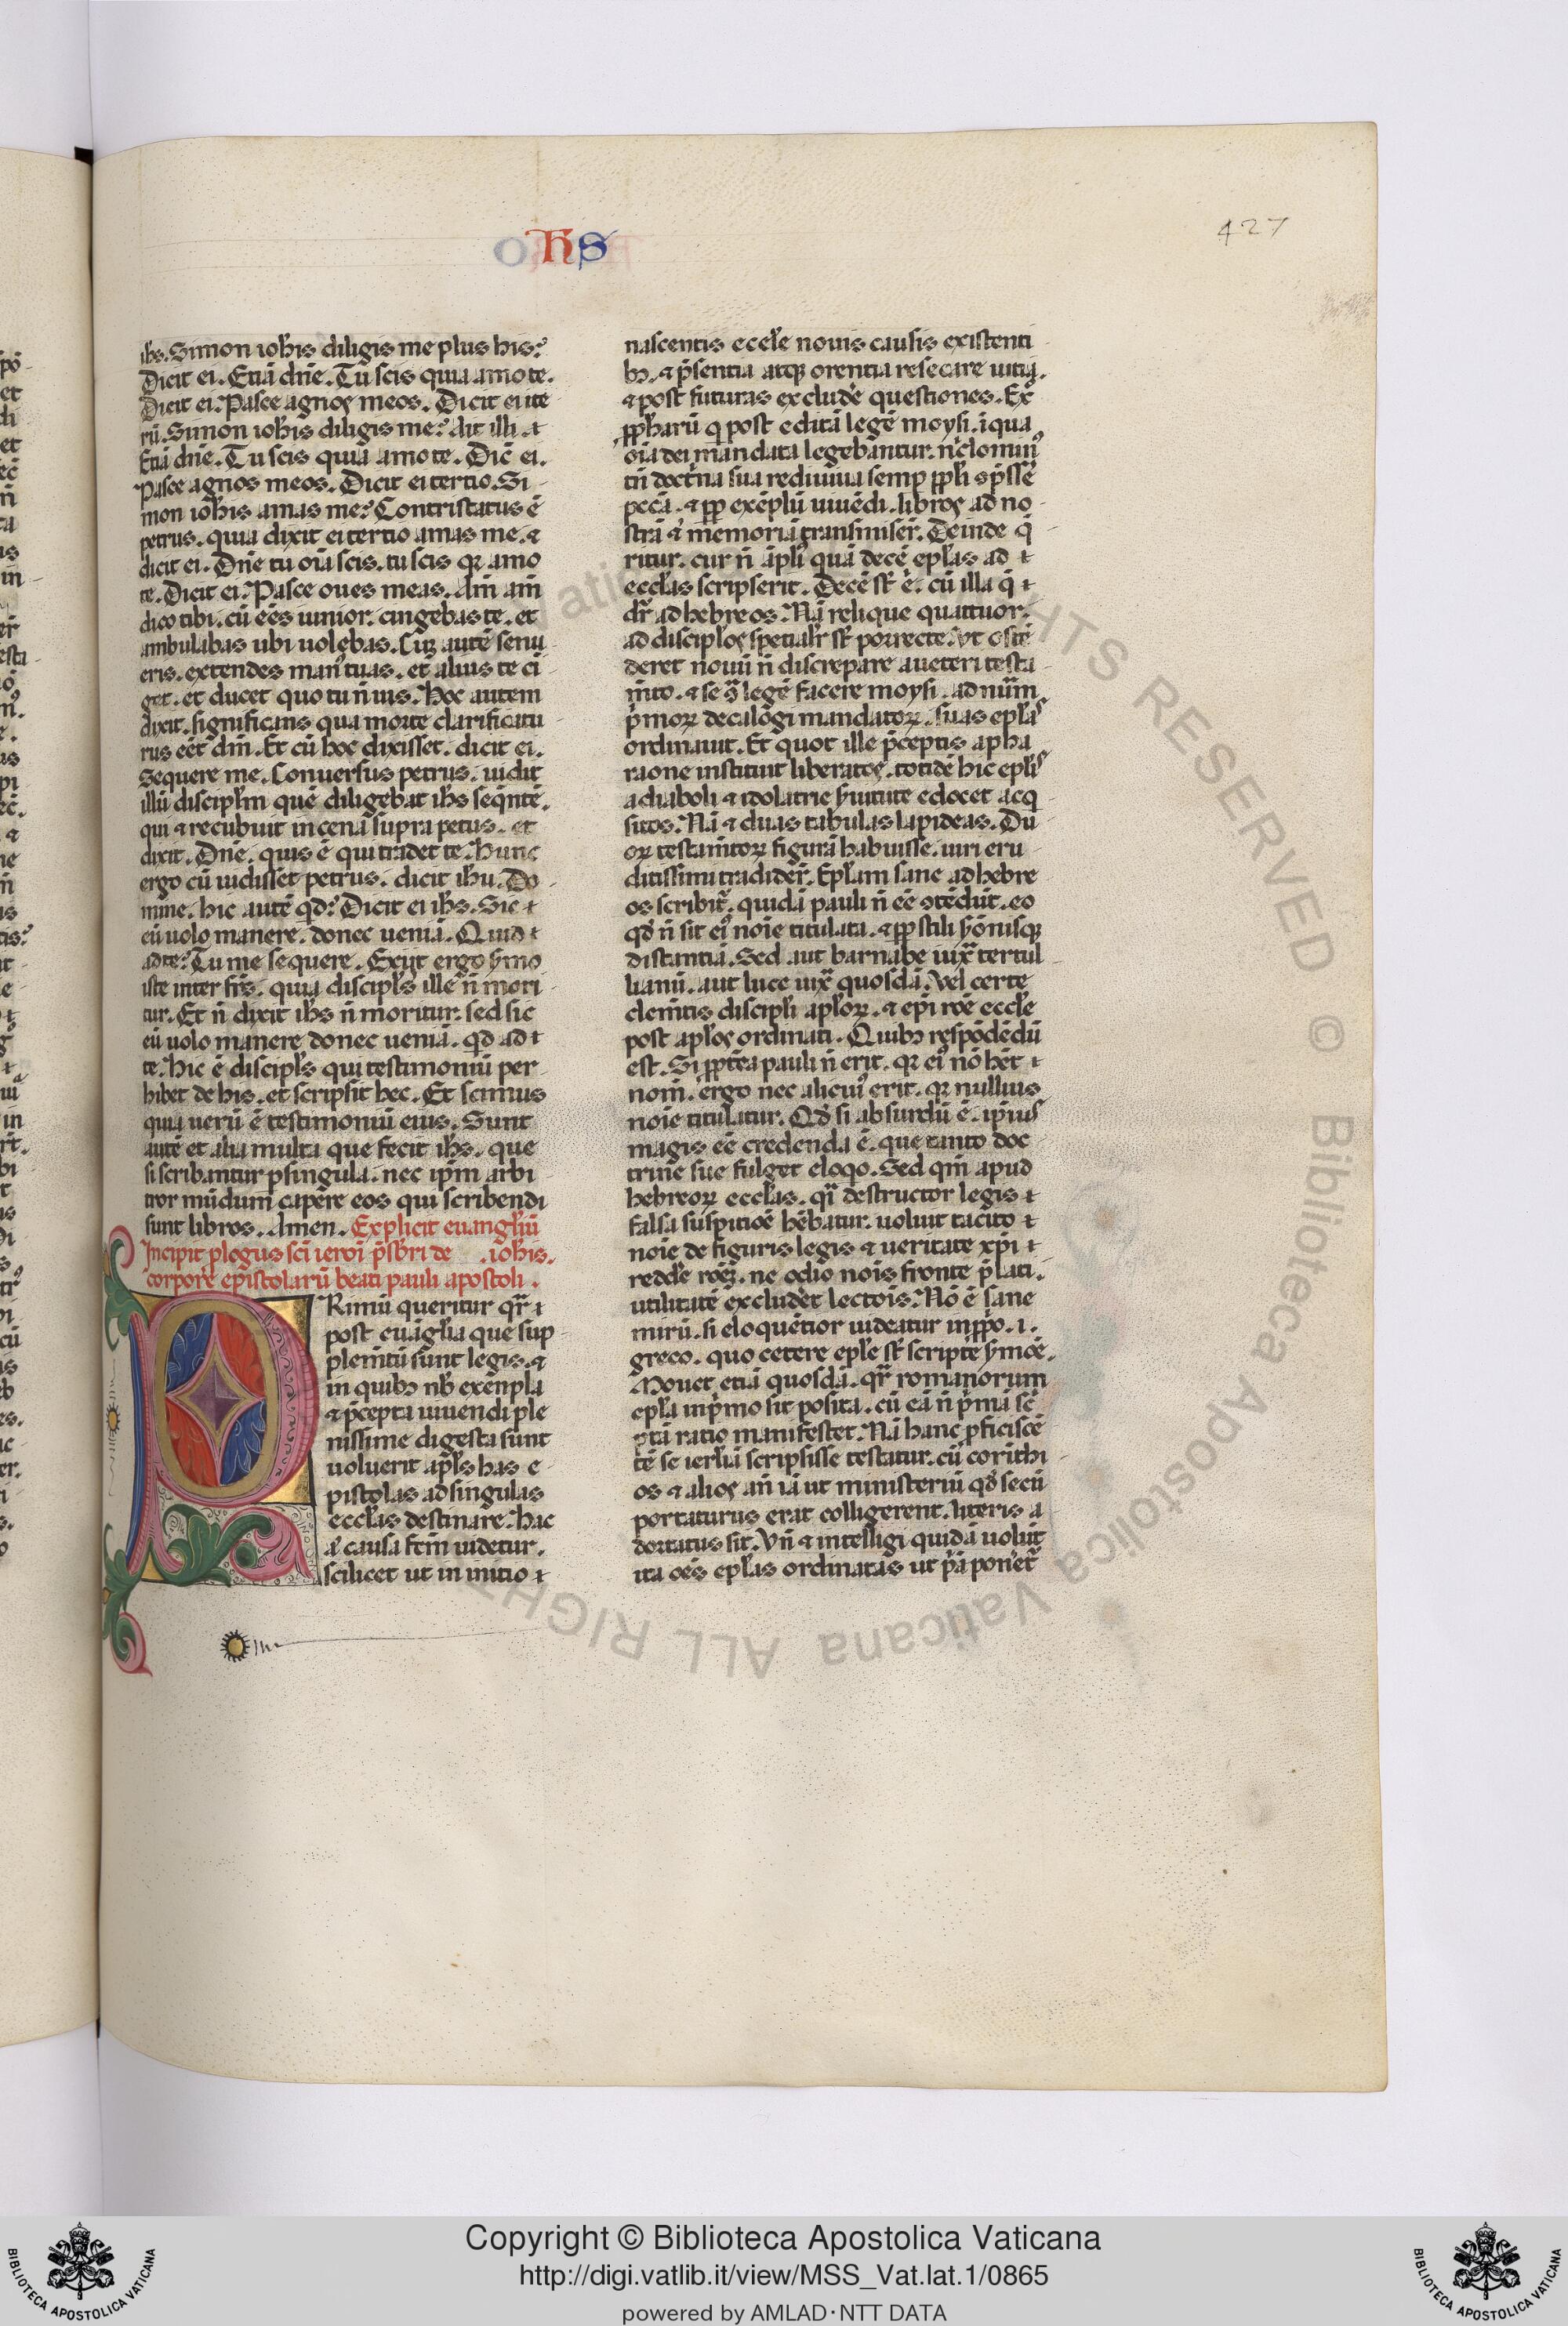 OHS
427
ihs. Simon iohis diligis me plus his?
Dicit ei. Etiā dn̄e. Tu scis quia amo te.
Dicit ei. Pasce agnos meos. Dicit ei ite
rū. Simon iohis diligis me? Ait illi.
Etiā dn̄e. Tu scis quia amo te. Dic̄ ei.
Pasce agnos meos. Dicit ei tertio. Si
mon iohis amas me? Contristatus ē
petrus. quia dixit ei tertio amas me. ⁊
dicit ei. Dn̄e tu oīa scis. tu scis qꝛ amo
te. Dicit ei. Pasce oues meas. Am̄ am̄
dico tibi. cū eēs iunior. cingebas te. et
ambulabas ubi uolebas. Cuꝫ autē senu
eris. extendes manꝰ tuas. et alius te ci
get. et ducet quo tu n̄ uis. Hoc autem
dixit. significans qua morte clarificatu
rus eēt dm̄. Et cū hoc dixisset. dicit ei.
Sequere me. Conuersus petrus. uidit
illū discipl̄m quē diligebat ihs seq̄ntē.
qui ⁊ recubuit in cena supra petus. et
dixit. Dn̄e. quis ē qui tradet te. Hunc
ergo cū uidisset petrus. dicit ihu. Do
mine. hic autē qd? Dicit ei ihs. Sic
eū uolo manere. donec ueniā. Quid
ad te? Tu me sequere. Exijt ergo s̄mo
iste inter fr̄s. quia discipl̄s ille n̄ mori
tur. Et n̄ dixit ihs n̄ moritur. sed sic
eū uolo manere donec ueniā. qd ad
te. Hic ē discipl̄s qui testimoniū per
hibet de his. et scripsit hec. Et scimus
quia uerū ē testimoniū eius. Sunt
autē et alia multa que fecit ihs. que
si scribantur ꝑ singula. nec ip̄m arbi
tror mūdum capere eos qui scribendi
sunt libros. Amen. Explicit euangl̄iū
Incipit ꝓlogus sc̄i ieroī p̄sbri de .iohis.
corpore epistolarū beati pauli apostoli.
PRimū queritur qr̄
post euāgl̄ia que sup
plem̄tū sunt legis. ⁊
in quibꝫ nb̄ exēnpla
⁊ p̄cepta uiuendi ple
nissime digesta sunt
uoluerit apl̄s has e
pistolas ad singulas
eccl̄as destinare. Hac
a͛ causa fc̄m uidetur.
scilicet ut in initio
nascentis eccl̄e nouis causis existenti
bꝫ. ⁊ p̄sentia atqꝫ orentia resecare uitia.
⁊ post futuras excludē questiones. Ex
ꝓpharū q̄ post editā legē moysi. ī qua
oīa dei mandata legebantur. n̄clominꝰ
tn̄ doct̄na sua rediuiua semp ꝓphī ꝯp̄sse
pecā. ⁊ ꝓp exēplū uiuēdi. libros ad no
strā ⁊ memoriā transmiser̄. Deinde q̄
ritur. cur n̄ āpliꝰ quā decē epl̄as ad
eccl̄as scripserit. Decē sr̄ ē. cū illa q̄
dr̄ ad hebreos. Nā relique quattuor.
ad discipl̄os spetial'r sr̄ porrecte. Vt oste
deret nouū n̄ discrepare a ueteri testa
m̄to. ⁊ se ꝯ̄ legē facere moysi. ad nūm
p̄moꝝ decalogi mandatoꝝ. suas epl̄as
ordinauit. Et quot ille p̄ceptis a pha
raone instituit liberatos. totidē hic epl̄is
a diaboli ⁊ idolatrie s̄uitute edocet acq
sitos. Nā ⁊ duas tabulas lapideas. Du
oꝝ testam̄toꝝ figurā habuisse. uiri eru
ditissimi tradider̄. Epl̄am sane ad hebre
os scribit̄. quidā pauli n̄ eē ꝯtēdūt. eo
qd̄ n̄ sit eiꝰ noīe titulata. ⁊ ꝓp stili s̄onisqꝫ
distantiā. Sed aut barnabe iux̄ tertul
lianū. aut luce iux̄ quosdā. Vel certe
clem̄tis discipl̄i apl̄oꝝ. ⁊ ep̄i roē eccl̄e
post apl̄os ordinati. Quibꝫ respōdēdū
est. Si ꝓptēa pauli n̄ erit. qꝛ eiꝰ nō hēt
nom̄. ergo nec alicuiꝰ erit. qꝛ nullius
noīe titulatur. Qd̄ si absurdū ē. ip̄ius
magis eē credenda ē. que tanto doc
trine sue fulget eloqo. Sed qm̄ apud
hebreoꝝ eccl̄as. q̄i destructor legis
falsa suspitiōe hēbatur. uoluit tacito
noīe de figuris legis ⁊ ueritate xp̄i
reddē roēꝫ. ne odio nois fronte p̄lati.
utilitatē excludēt lectoīs. Nō ē sane
mirū. si eloquētior uideatur in ꝓpo .i.
greco. quo cetere eple sr̄ scripte s̄moē.
Mouet etiā quosdā. qr̄ romanorum
epl̄a in p̄mo sit posita. cū eā n̄ p̄mā sc̄
ptā ratio manifestet. Nā hanc ꝓficiscē
tē se ierl̄m scripsisse testatur. cū corīthi
os ⁊ alios an̄ iā ut ministeriū qd̄ secū
portaturus erat colligerent. literis a
dortatus sit. Vn̄ ⁊ intelligi quidā uolūt
ita oēs epl̄as ordinatas ut p̄a ponet̄
Copyright © Biblioteca Apostolica Vaticana
http://digi.vatlib.it/view/MSS_Vat.lat.1/0865
powered by AMLAD·NTT DATA
BIBLIOTECA APOSTOLICA VATICANA
BIBLIOTECA APOSTOLICA VATICANA
ALL RIGHTS RESERVED © Biblioteca Apostolica Vaticana